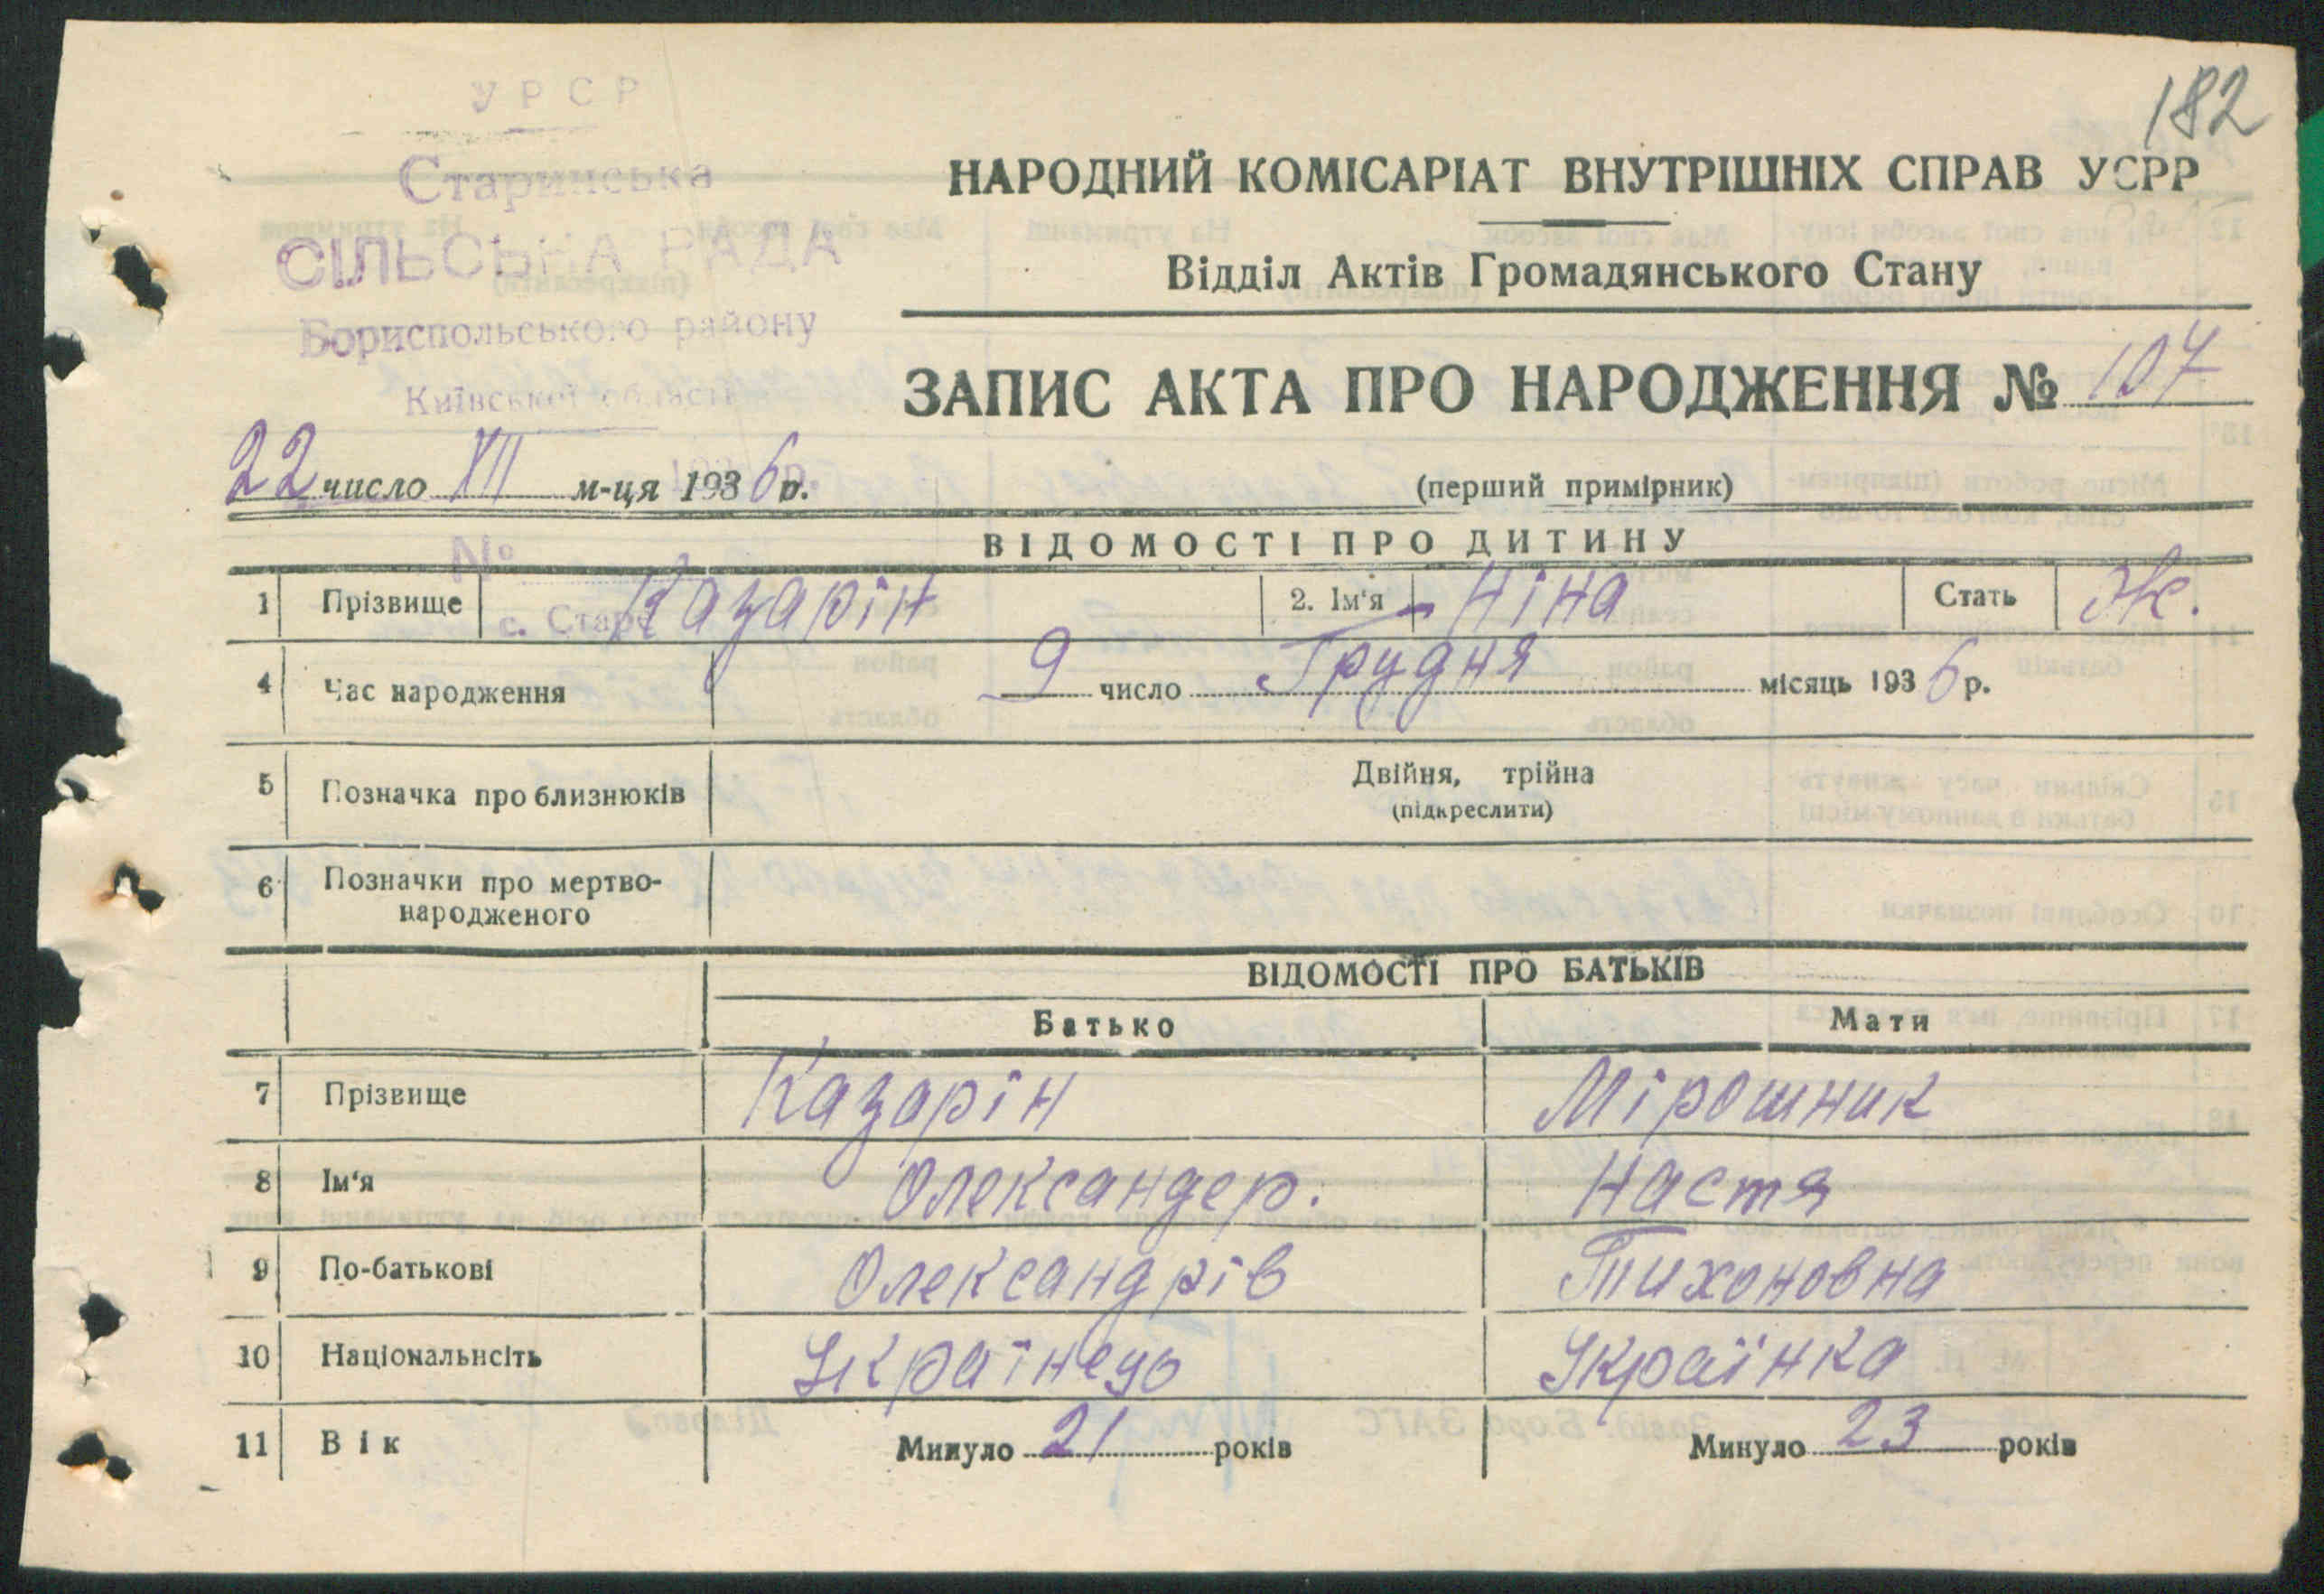 182
УРСР
Старинська
СІЛЬСЬКА РАДА
Бориспольського району
Київської області
НАРОДНИЙ КОМІСАРІАТ ВНУТРІШНІХ СПРАВ УСРР
Відділ Актів Громадянського Стану
ЗАПИС АКТА ПРО НАРОДЖЕННЯ № 107
22 число XII м-ця 1936 р.
(перший примірник)
ВІДОМОСТІ ПРО ДИТИНУ
№
с. Старе
1 Прізвище Казарін 2. Ім'я Ніна Стать Ж.
4 Час народження 9 число Грудня місяць 1936 р.
5 Позначка про близнюків Двійня, трійна
(підкреслити)
6 Позначки про мертво-
народженого
ВІДОМОСТІ ПРО БАТЬКІВ
Батько Мати
7 Прізвище Казарін Мірошник
8 Ім'я Олександер. Настя
9 По-батькові Олександрів Тихоновна
10 Національнсіть Українець Українка
11 Вік Минуло 21 років Минуло 23 років